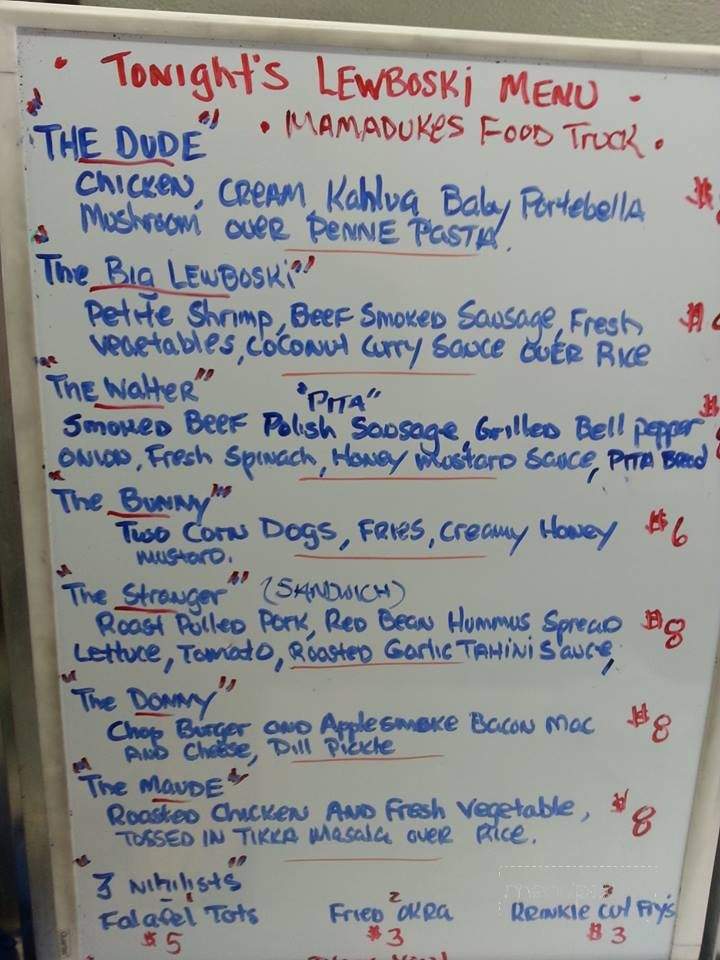 • TONIGHT'S LEWBOSKI MENU •
• MAMADUKES FOOD TRUCK •
"THE DUDE"
CHICKEN, CREAM, Kahlua Baby Portebella $
Mushroom OVER PENNE PASTA.
"The Big LEWBOSKI"
Petite Shrimp, BEEF SMOKED Sausage, Fresh $
vegetables, coconut curry sauce OVER RICE
"THE Walter" "PITA" $
SMOKED BEEF Polish Sausage, Grilled Bell pepper
ONION, Fresh Spinach, Honey mustard Sauce, PITA Bread
"The Bunny"
Two Corn Dogs, FRIES, creamy Honey $6
mustard.
"The Stranger" (SANDWICH)
Roast Pulled Pork, Red Bean Hummus Spread $8
Lettuce, Tomato, Roasted Garlic TAHINI Sauce,
"The DONNY"
Chop Burger AND Applesmoke Bacon Mac $8
AND Cheese, Dill Pickle
"The MAUDE"
Roasted Chicken AND Fresh Vegetable, $8
TOSSED IN TIKKA Masala OVER RICE.
"3 Nihilists"
1 2 3
Falafel Tots Fried OKRA KRINKLE CUT Fry's
$5 $3 $3